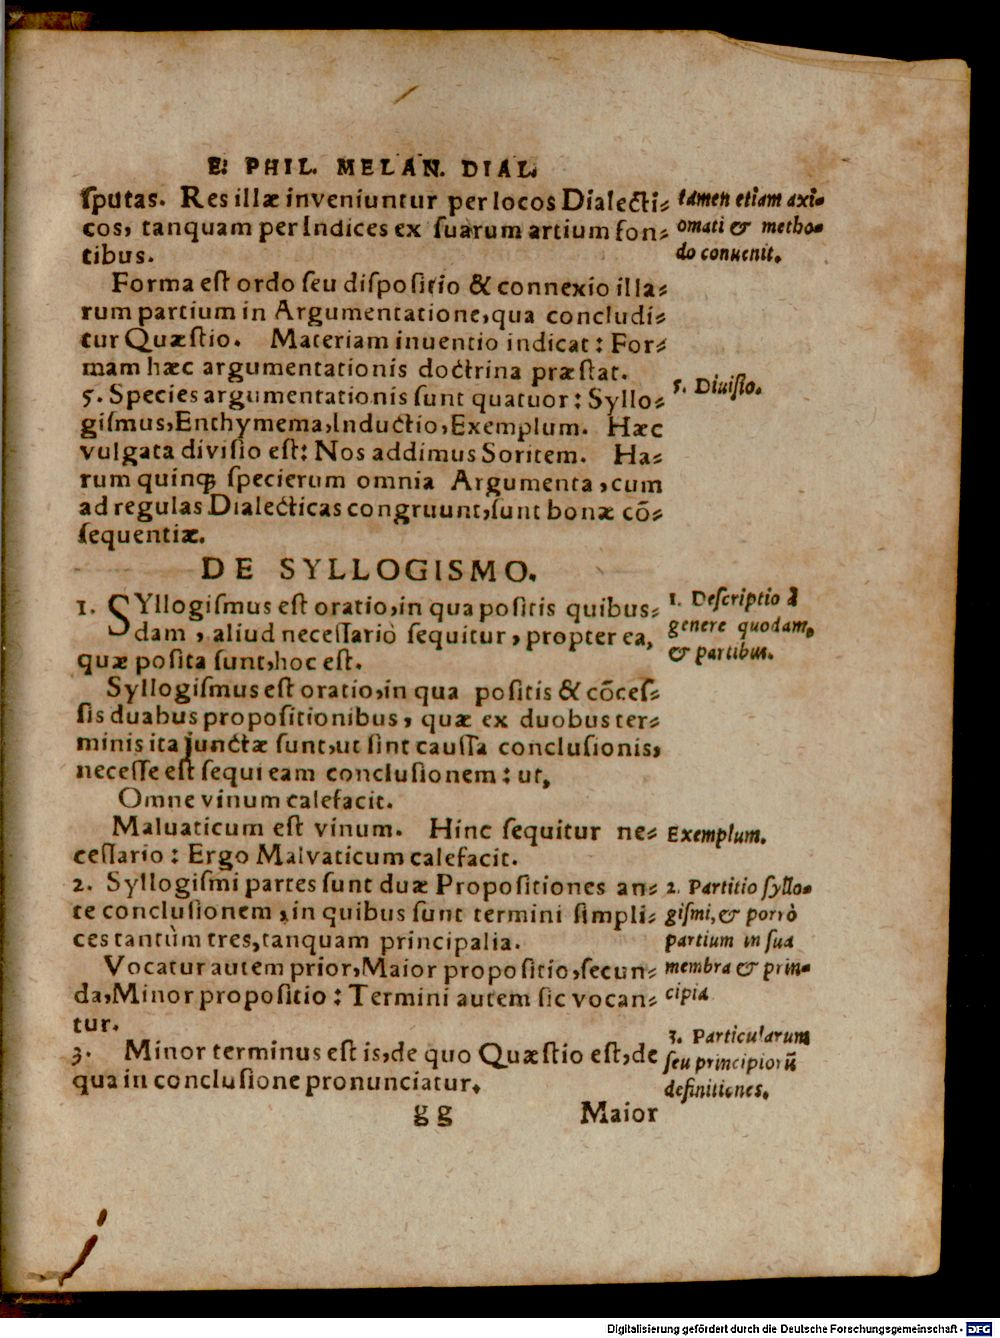 E. PHIL. MELAN. DIAL.
ſputas. Res illæ inveniuntur per locos Dialecti-
cos, tanquam per Indices ex ſuarum artium fon-
tibus.
tamen etiam axi-
omati & metho-
do conuenit.
Forma eſt ordo ſeu diſpoſitio & connexio illa-
rum partium in Argumentatione, qua concludi-
tur Quæſtio. Materiam inuentio indicat: For-
mam hæc argumentationis doctrina præſtat.
5. Species argumentationis ſunt quatuor: Syllo-
giſmus, Enthymema, Inductio, Exemplum. Hæc
vulgata diviſio eſt: Nos addimus Soritem. Ha-
rum quinq; ſpecierum omnia Argumenta, cum
ad regulas Dialecticas congruunt, ſunt bonæ cō-
ſequentiæ.
5. Diuiſio.
DE SYLLOGISMO.
1. SYllogiſmus eſt oratio, in qua poſitis quibus-
dam, aliud neceſſariò ſequitur, propter ea,
quæ poſita ſunt, hoc eſt.
1. Deſcriptio à
genere quodam,
& partibus.
Syllogiſmus eſt oratio, in qua poſitis & cōceſ-
ſis duabus propoſitionibus, quæ ex duobus ter-
minis ita junctæ ſunt, ut ſint cauſſa concluſionis,
neceſſe eſt ſequi eam concluſionem: ut,
Omne vinum calefacit.
Maluaticum eſt vinum. Hinc ſequitur ne-
ceſſario: Ergo Malvaticum calefacit.
Exemplum.
2. Syllogiſmi partes ſunt duæ Propoſitiones an-
te concluſionem, in quibus ſunt termini ſimpli-
ces tantùm tres, tanquam principalia.
Vocatur autem prior, Maior propoſitio, ſecun-
da, Minor propoſitio: Termini autem ſic vocan-
tur.
2. Partitio ſyllo-
giſmi, & porrò
partium in ſua
membra & prin-
cipia
3. Minor terminus eſt is, de quo Quæſtio eſt, de
qua in concluſione pronunciatur.
3. Particularum
ſeu principiorū
definitiones.
gg Maior
Digitalisierung gefördert durch die Deutsche Forschungsgemeinschaft - DFG